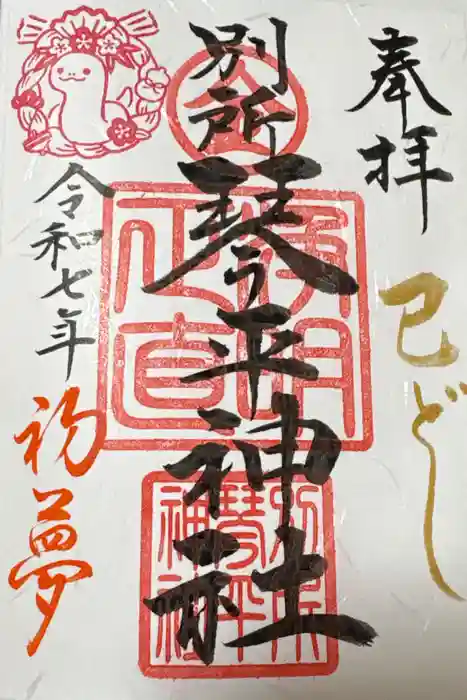 奉拝
巳どし
別所
琴平神社
令和七年
初夢
正直
別所
琴平
神社